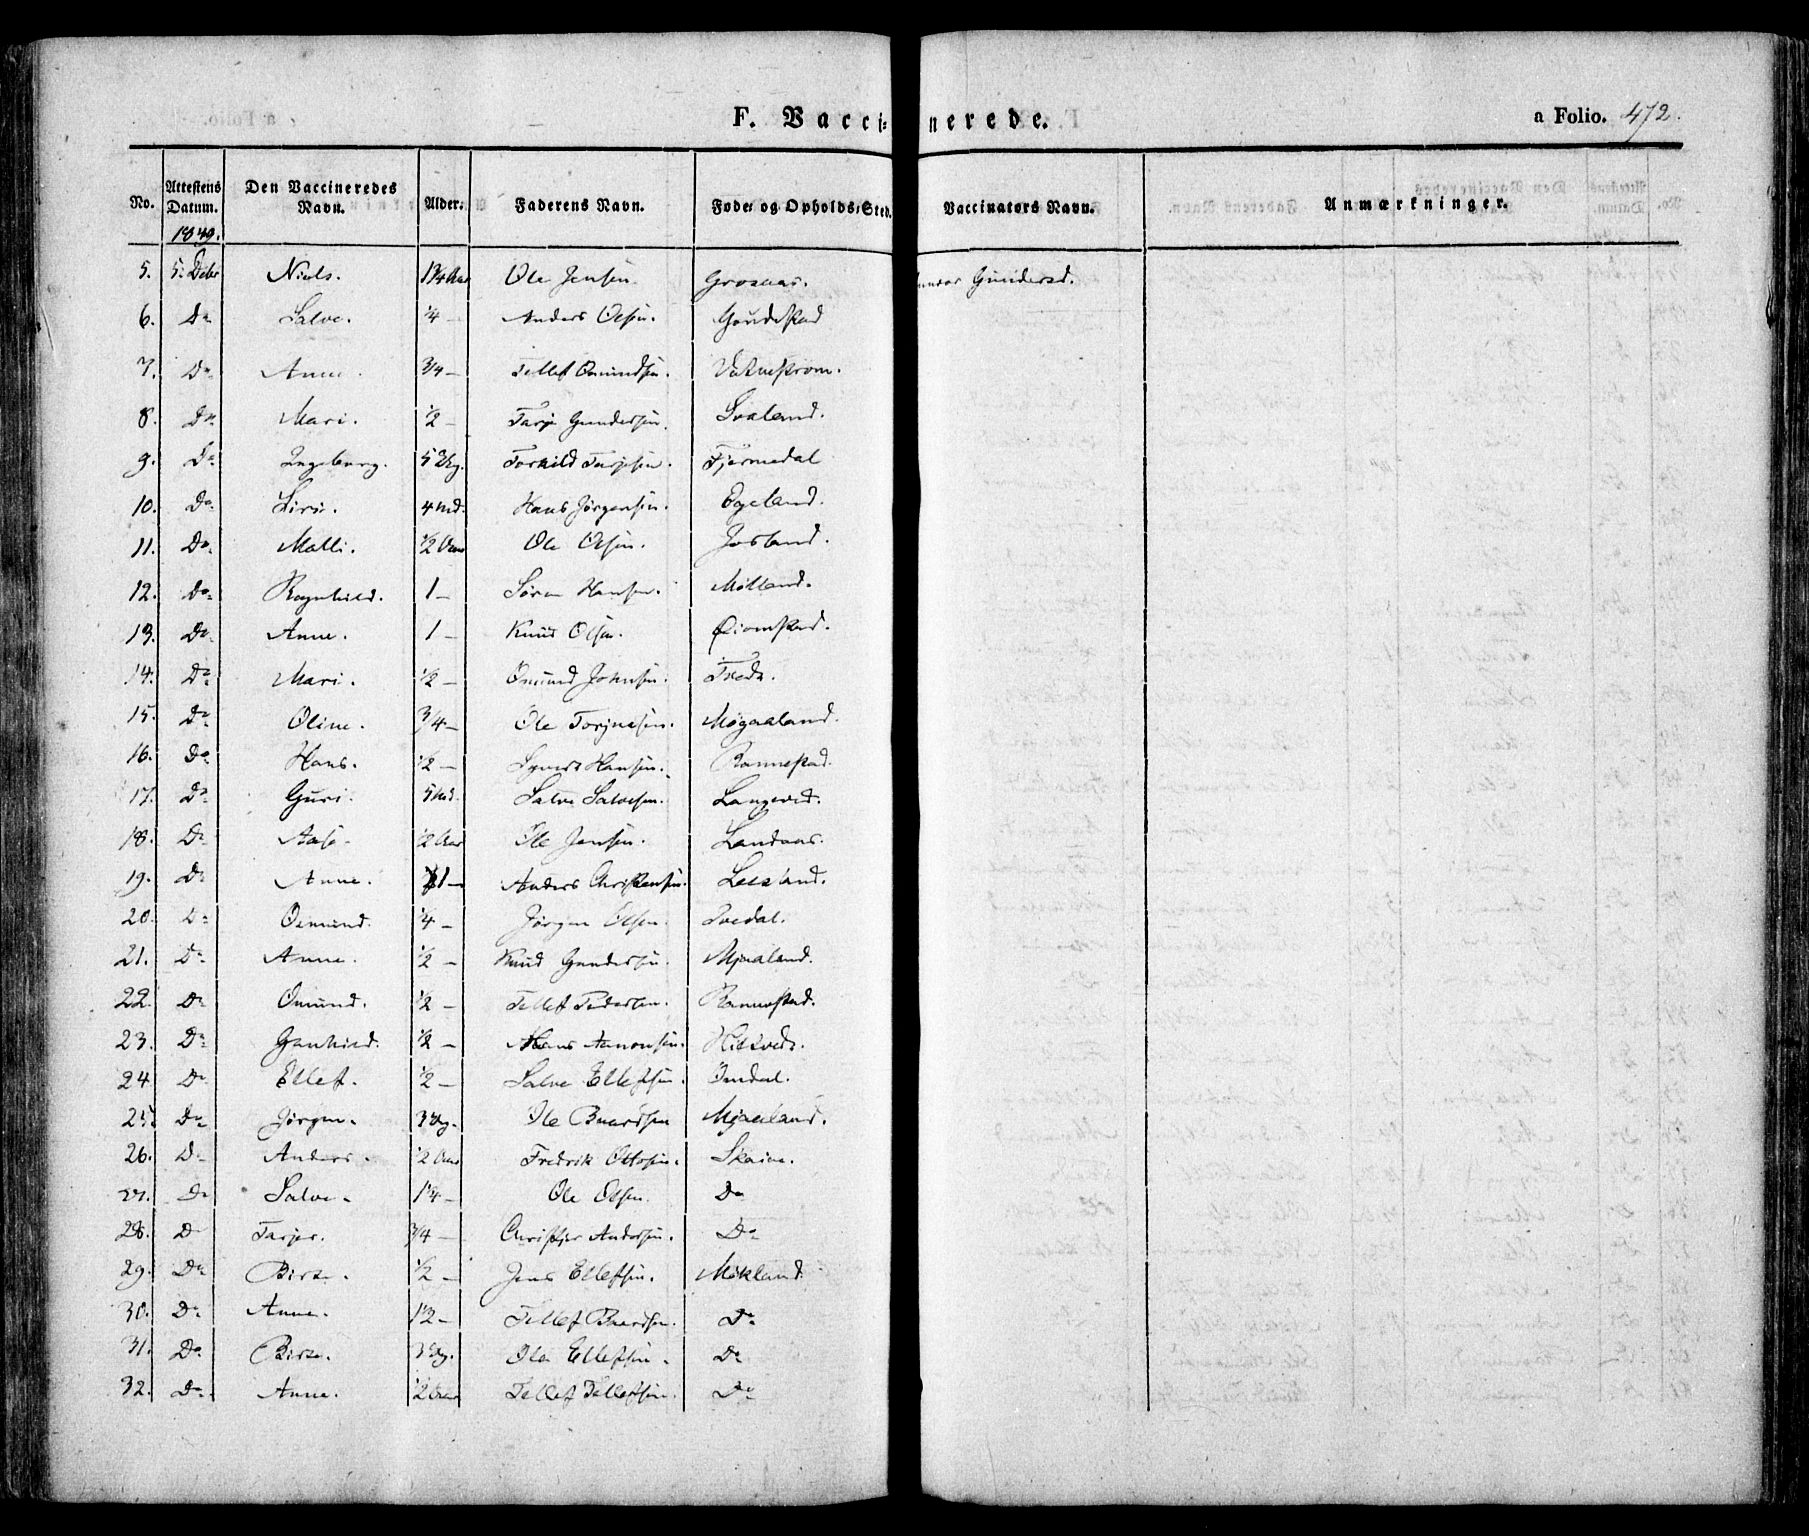 F. Vacci=nerede. a Folio. 472.
No. Attestens Datum. Den Vaccineredes Navn. Alder. Faderens Navn. Føde- og Opholds-Sted. Vaccinators Navn. Anmærkninger.
1849.
5. 5. Debr Niels. Ole Jensen. Grosaas. Gundersd.
6. Do Salve. 1/4 — Anders Olsen. Goudestad
7. Do Anne. 3/4 — Tellef Omundsen. Vatnestrøm.
8. Do Mari. 1/2 — Tarje Gundersen. Svaland.
9. Do Ingeborg. 5 Torkild Tarjesen. Tjermedal
10. Do Siri. 4 Md. Hans Jørgensen. Egeland.
11. Do Malli. 1/2 Aar Ole Olsen. Josland.
12. Do Ragnhild. 1 — Søren Hansen. Mølland.
13. Do Anne. 1 — Knud Olsen.
14. Do Mari. 1/2 — Omund Johnsen. Tveds.
15. Do Oline. 3/4 — Ole Torjusen. Møgaaland.
16. Do Hans. 1/2 — Syvert Hansen. Rannestad.
17. Do Guri. 5 Md. Salve Salvesen. Langeved.
18. Do Aase. 1/2 Aar Ole Jensen. Landaas.
19. Do Anne. 1 — Anders Christensen.
20. Do Osmund. 1/4 — Jørgen Olsen. Ivedal.
21. Do Anne. 1/2 — Knud Gundersen. Mjaaland.
22. Do Omund. 1/2 — Tellef Pedersen. Rannestad.
23. Do Gunhild. 1/2 — Hans Aanonsen.
24. Do Ellef. 1/2 — Salve Ellefsen. Omdal.
25. Do Jørgen. 3 Ole Baardsen Mjaaland.
26. Do Anders. 1/2 Aar Fredrik Ottosen. Skaiae.
27. Do Salve. 1 1/4 — Ole Olsen. Do
28. Do Tarjer. 3/4 — Christjer Andersen. Do
29. Do Birte. 1/2 — Jens Ellefsen. Møkland.
30. Do Anne. 1 1/2 — Tellef Baardsen. Do
31. Do Birte. 3 Ole Ellefsen. Do
32. Do Anne. 1/2 Aar Tellef Tellefsen. Do